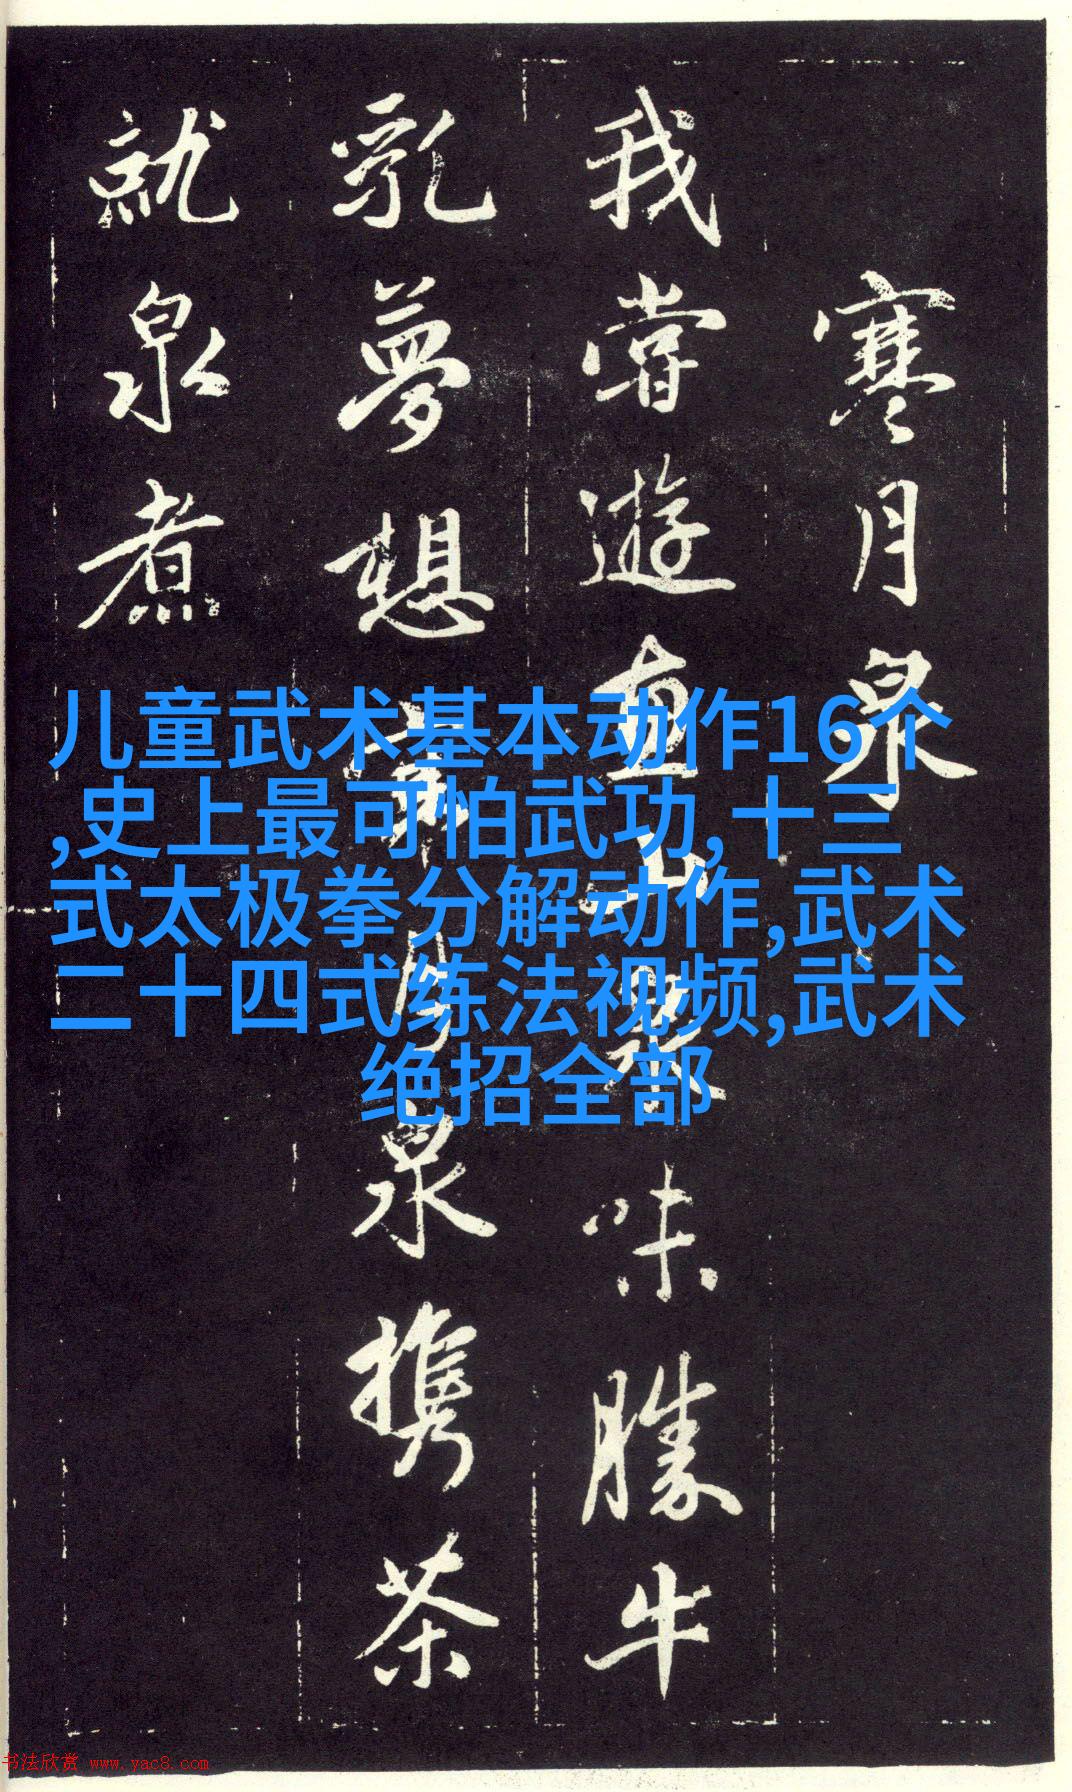 寒月泉
我嘗遊惠山泉味勝牛
乳夢想寒月泉携茶
就泉煮
儿童武术基本动作16个
,史上最可怕武功,十三
式太极拳分解动作,武术
二十四式练法视频,武术
绝招全部
书法欣赏 www.yac8.com